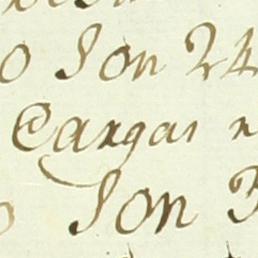 o Son 24
Cargas
o Son